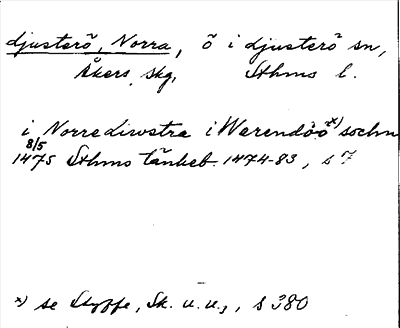 Ljusterö, Norra, ö i Ljusterö sn,
Åkers skg, Sthms l.
i Norre Liwstra i Warendöö x) sochn
8/5
1475 Sthms tänkeb. 1474-83, s 7
x) se Styffe, Sk. u. u., s 380